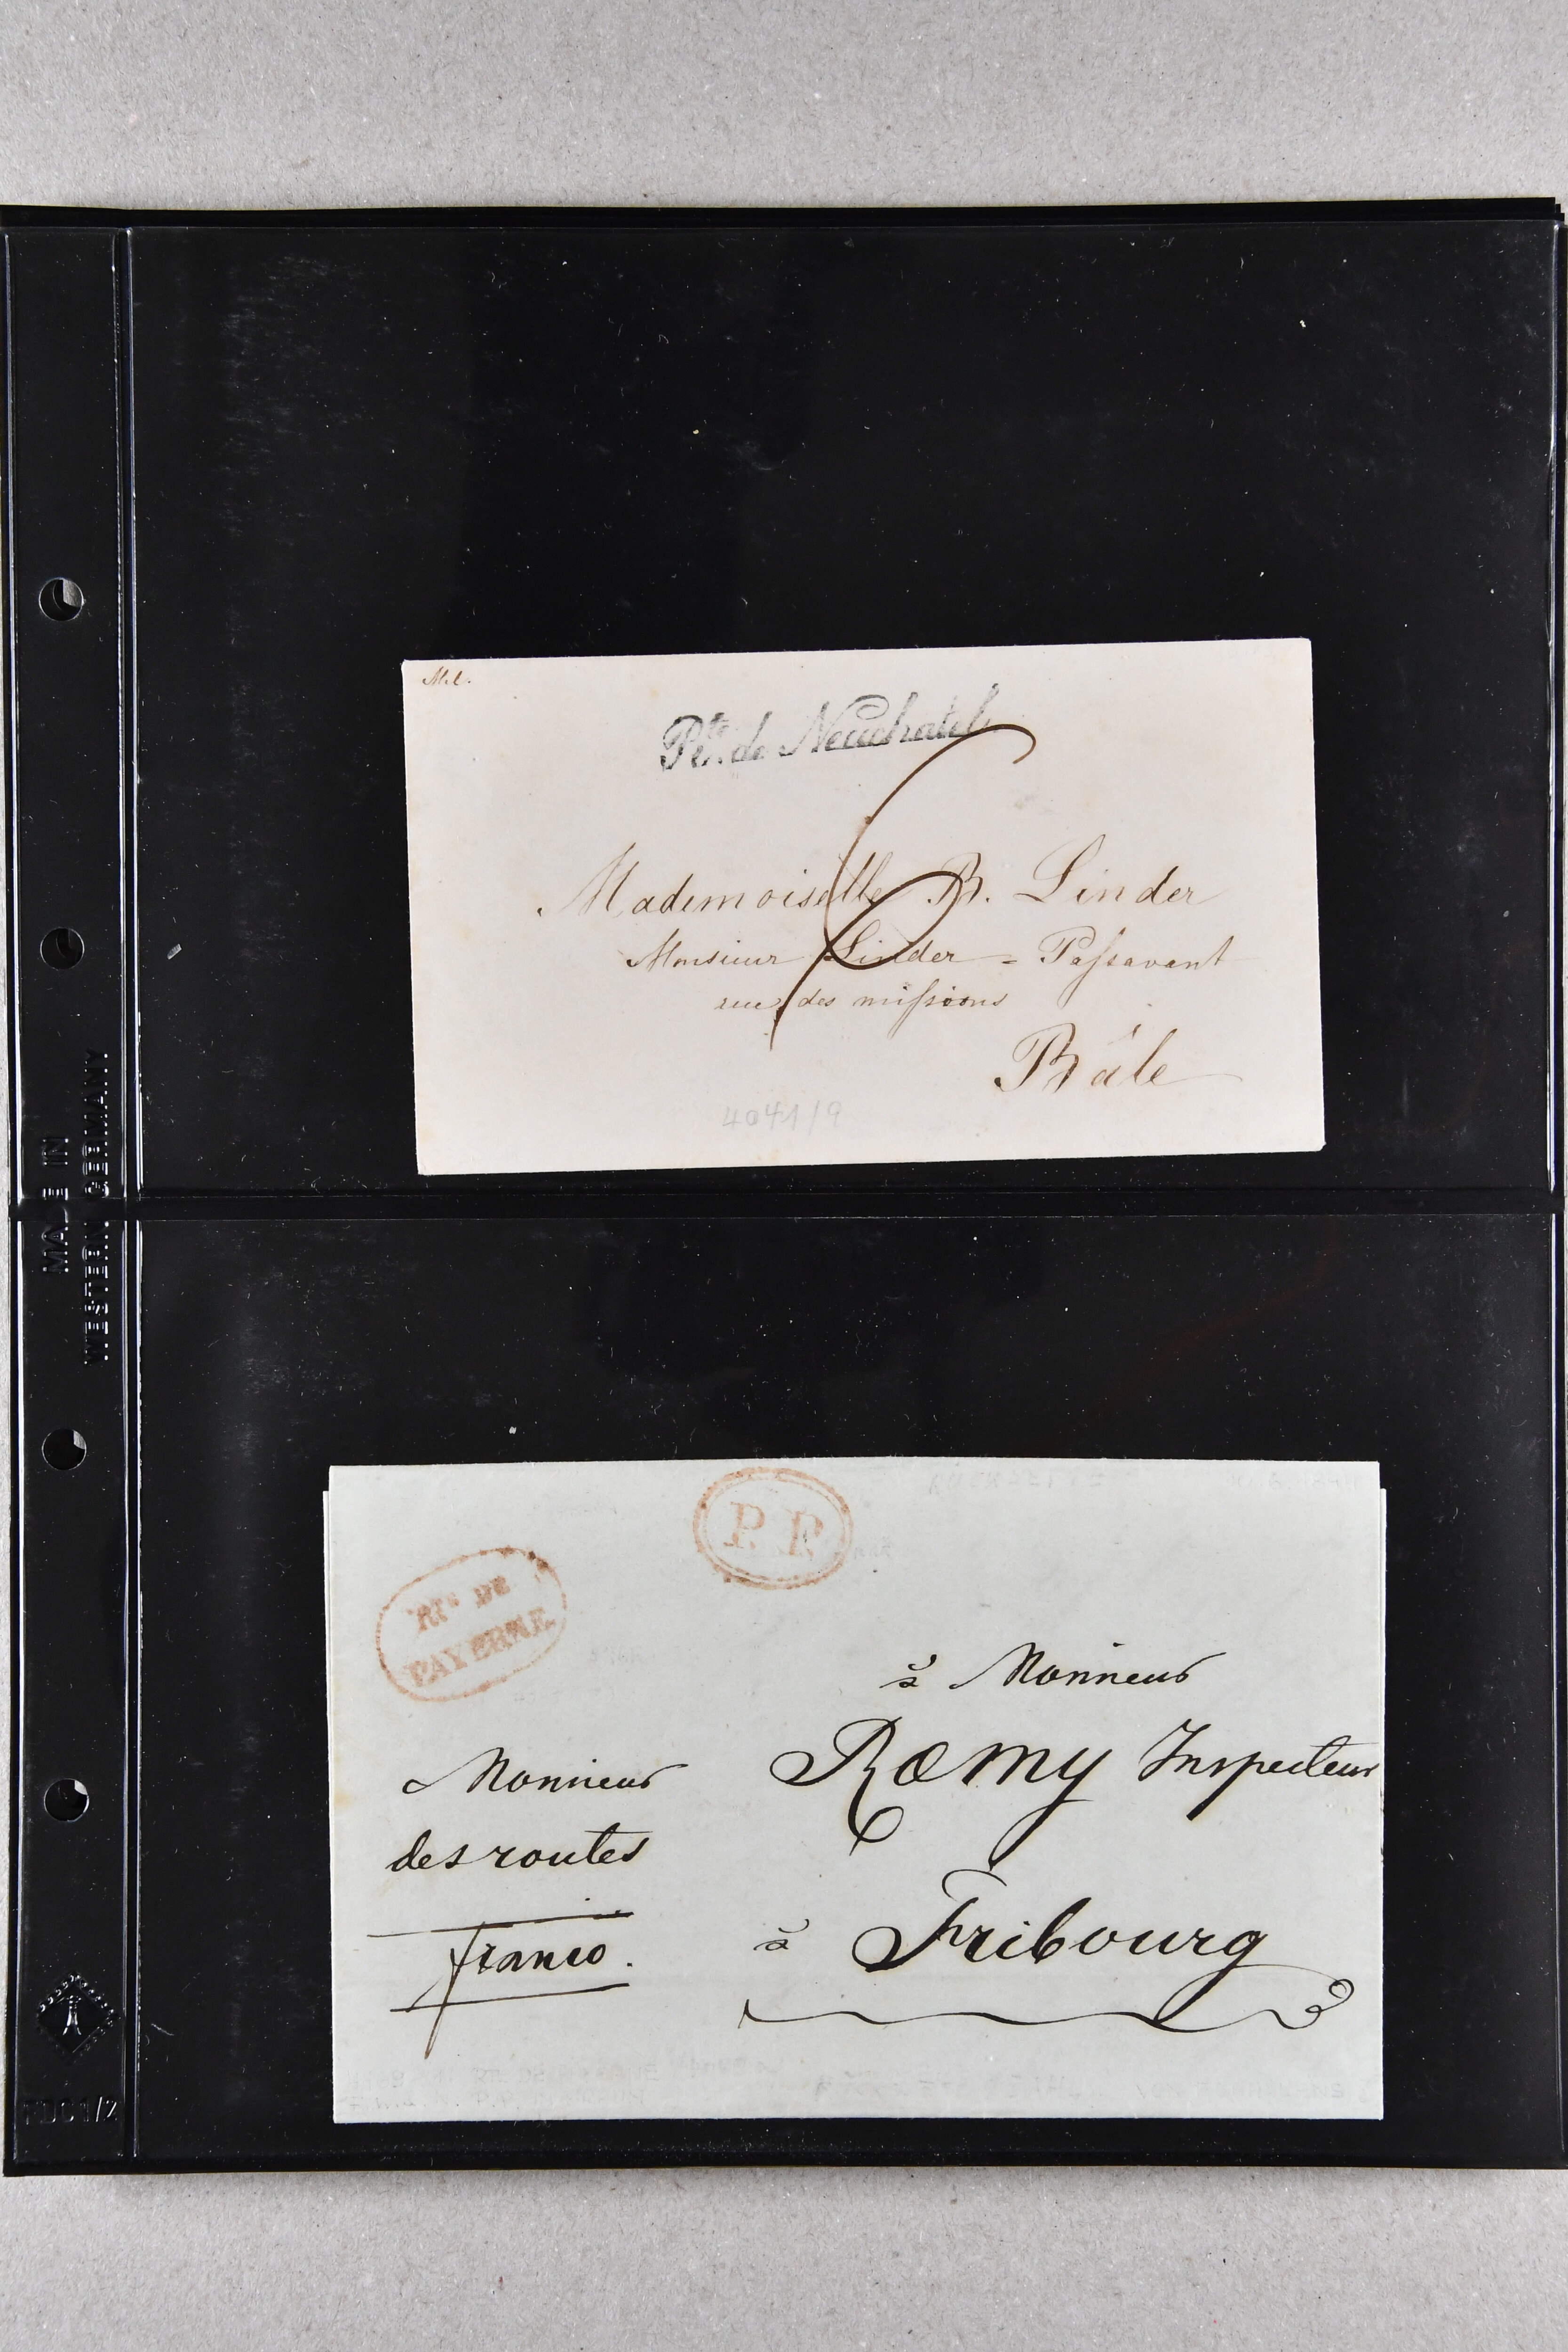 Pte. de Neuchatel
6
Mademoiselle B. Linder
Monsieur Linder = Paſsavant
rue des miſsions
Bâle
4041/9
MADE IN
WESTERN GERMANY
P.P.
RTE DE
PAYERNE
à Monsieur
Ræmy Inspecteur
Monsieur
des routes
franco.
à Fribourg